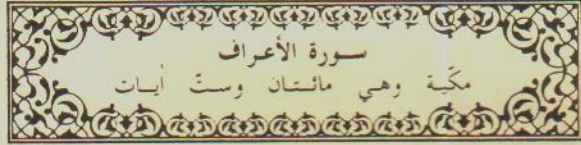 سورة الأعراف
مكّية وهي مائتان وستّ أيات